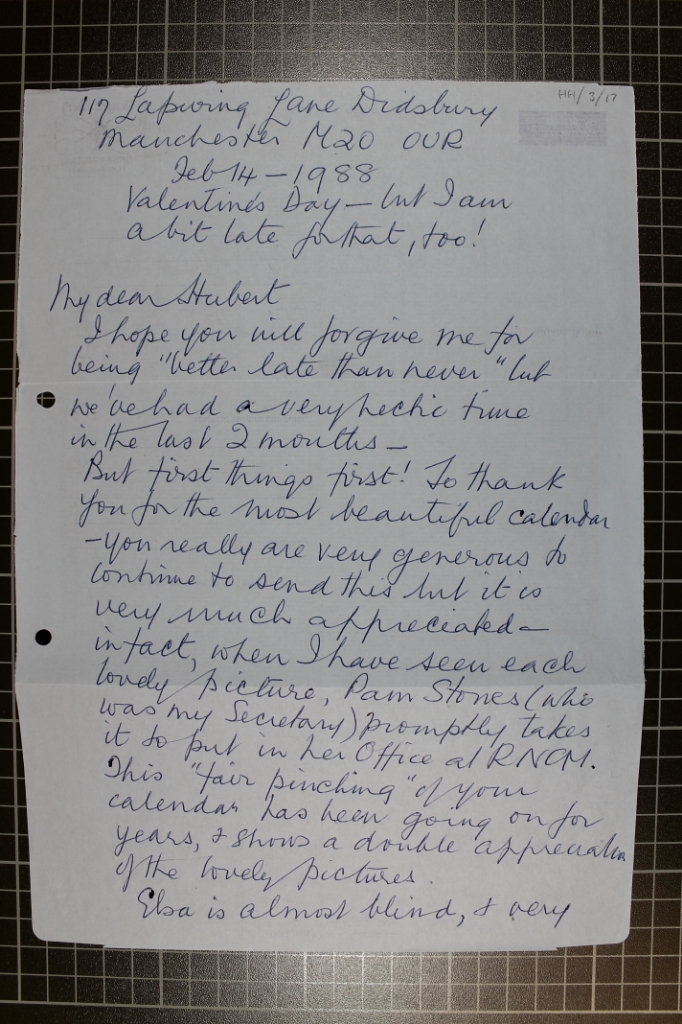 HH/3/17
117 Lapwing Lane Didsbury
Manchester M20 0UR
Feb 14 - 1988
Valentine's Day - but I am
a bit late for that, too!
My dear Hubert
I hope you will forgive me for
being "better late than never" but
we've had a very hectic time
in the last 2 months -
But first things first! To thank
you for the most beautiful calendar
- you really are very generous to
continue to send this but it is
very much appreciated -
in fact, when I have seen each
lovely picture, Pam Stones (who
was my Secretary) promptly takes
it to put in her Office at RNCM.
This "fair pinching" of your
calendar has been going on for
years, & shows a double appreciation
of the lovely pictures.
Elsa is almost blind, & very